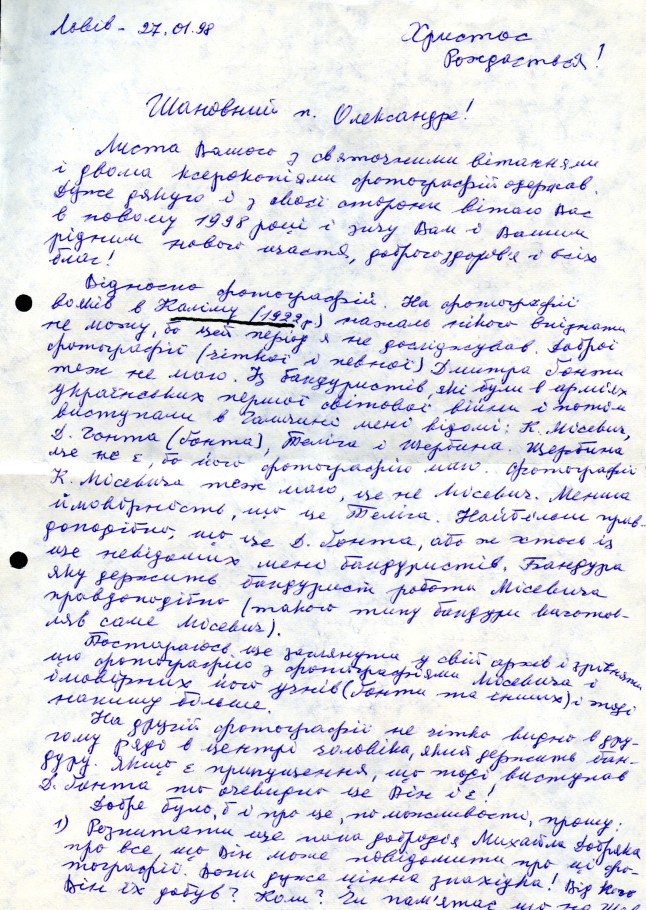 Львів - 27.01.98
Христос
Рождається!
Шановний п. Олександре!
Листа Вашого з святочними вітаннями
і двома ксерокопіями фотографій одержав.
Дуже дякую і з своєї сторони вітаю Вас
в новому 1998 році і зичу Вам і Вашим
рідним нового щастя, доброго здоров'я і всіх
благ!
Відносно фотографій. На фотографії
вояків в Калішу (1922р) нажаль нікого впізнати
не можу, бо цей період я не досліджував. Доброї
фотографії (чіткої і певної) Дмитра Гонти
теж не маю. Із бандуристів, які були в арміях
українських першої світової війни і потім
виступали в Галичині мені відомі: К. Місевич,
Д. Гонта (Ґонта), Теліга і Щербина. Щербина
це не є, бо його фотографію маю. Фотографії
К. Місевича теж маю, це не Місевич. Менша
ймовірність, що це Теліга. Найбільш прав-
доподібно, що це Д. Ґонта, або ж хтось із
ще невідомих мені бандуристів. Бандура
яку держить бандурист робота Місевича
правдоподібно (такого типу бандури виготов-
ляв саме Місевич).
Постараюсь ще заглянути у свій архів і зрівняти
цю фотографію з фотографіями Місевича і
ймовірних його учнів (Ґонти та інших) і тоді
напишу більше.
На другій фотографії не чітко видно в дру-
гому ряді в центрі чоловіка, який держить бан-
дуру. Якщо є припущення, що тоді виступав
Д. Ґонта то очевидно це Він і є!
Добре було б і про це, по можливості, прошу:
1) Розпитати ще пана добродія Михайла Добряка
про все, що Він може повідомити про ці фо-
тографії. Вони дуже цінна знахідка! Від кого
Він їх добув? Коли? Чи пам'ятає що